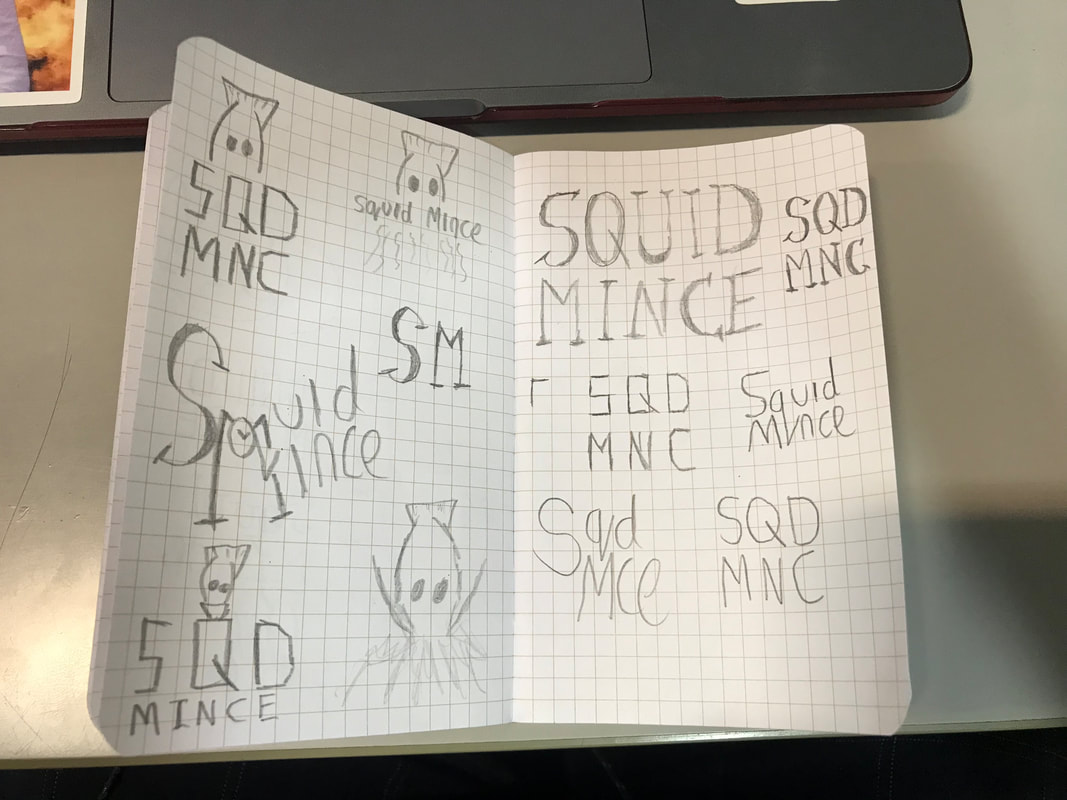 SQD
MNC
Squid Mince
SM
Squid
Mince
SQD
MINCE
SQUID
MINCE
SQD
MNC
SQD
MNC
Squid
Mince
Sqd
Mce
SQD
MNC